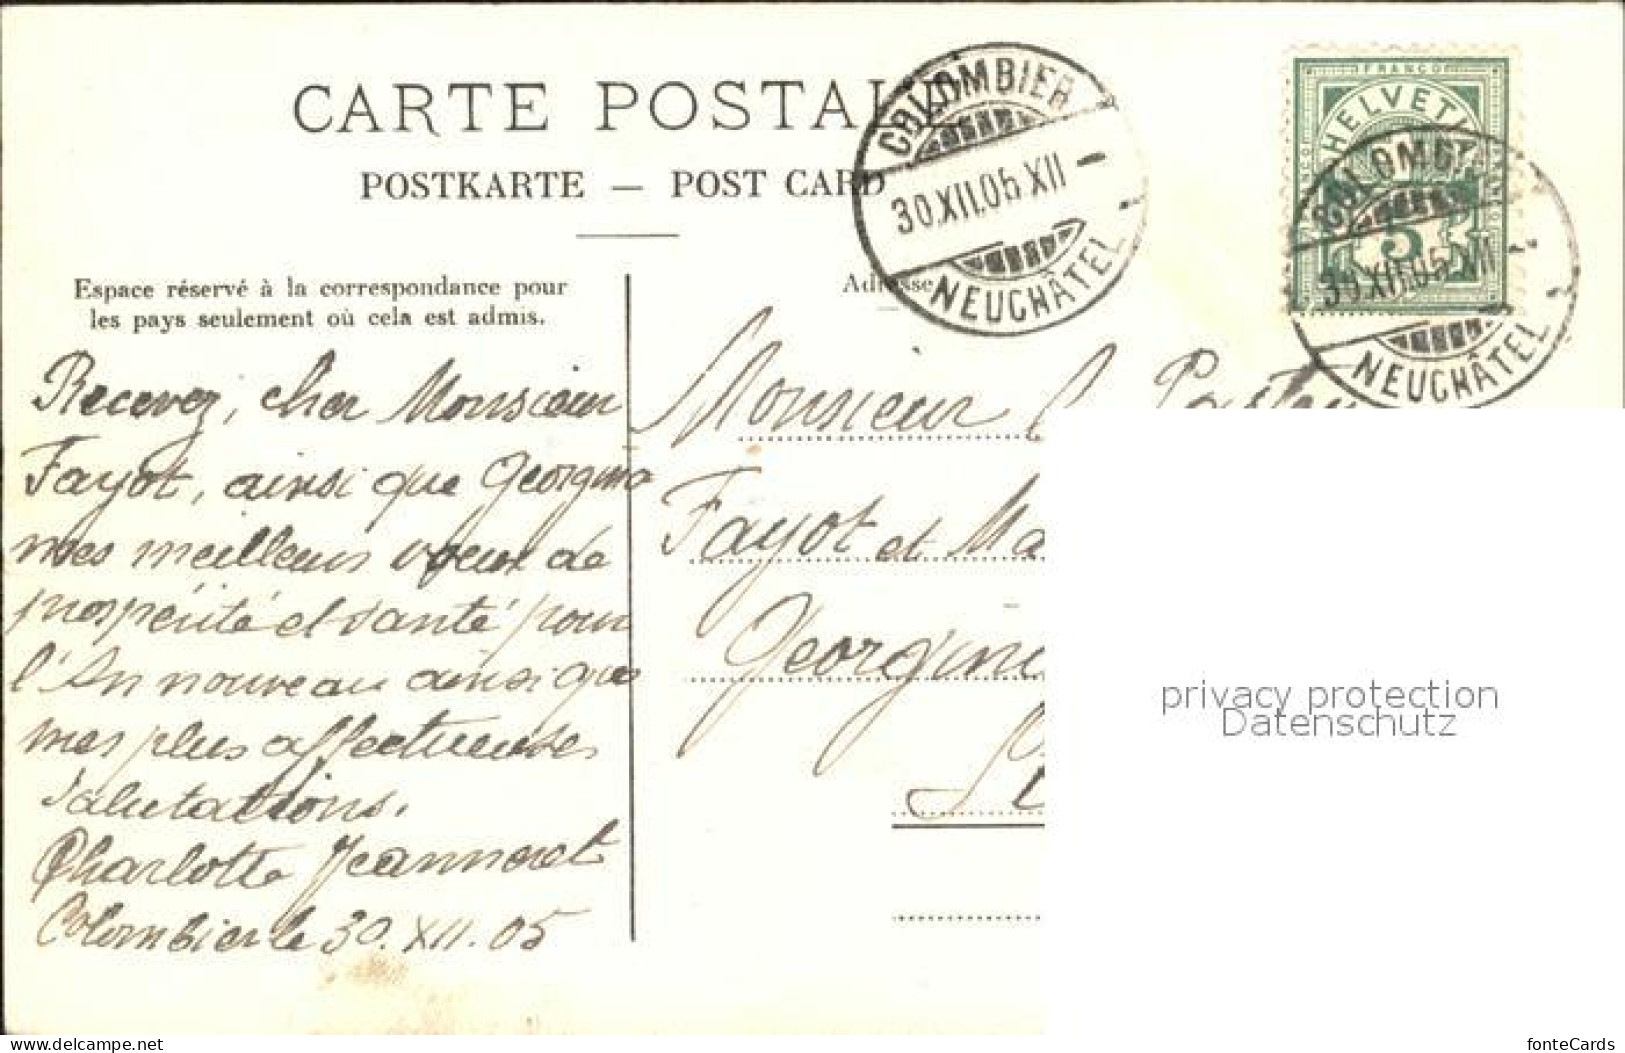 CARTE POSTALE
POSTKARTE — POST CARD
COLOMBIER
30.XII.05 XII –
NEUCHÂTEL
FRANCO
HELVETIA
5
COLOMBIER
30.XII.05 XII
NEUCHÂTEL
Espace réservé à la correspondance pour
les pays seulement où cela est admis.
Adresse
Recevez, cher Monsieur
Fayot, ainsi que Georgina
mes meilleurs voeux de
prospérité et santé pour
l'An nouveau ainsi que
mes plus affectueuses
salutations.
Charlotte Jeanneret
Colombier le 30. XII. 05
Monsieur
Fayot et Ma
Georgin
privacy protection
Datenschutz
www.delcampe.net
fonteCards